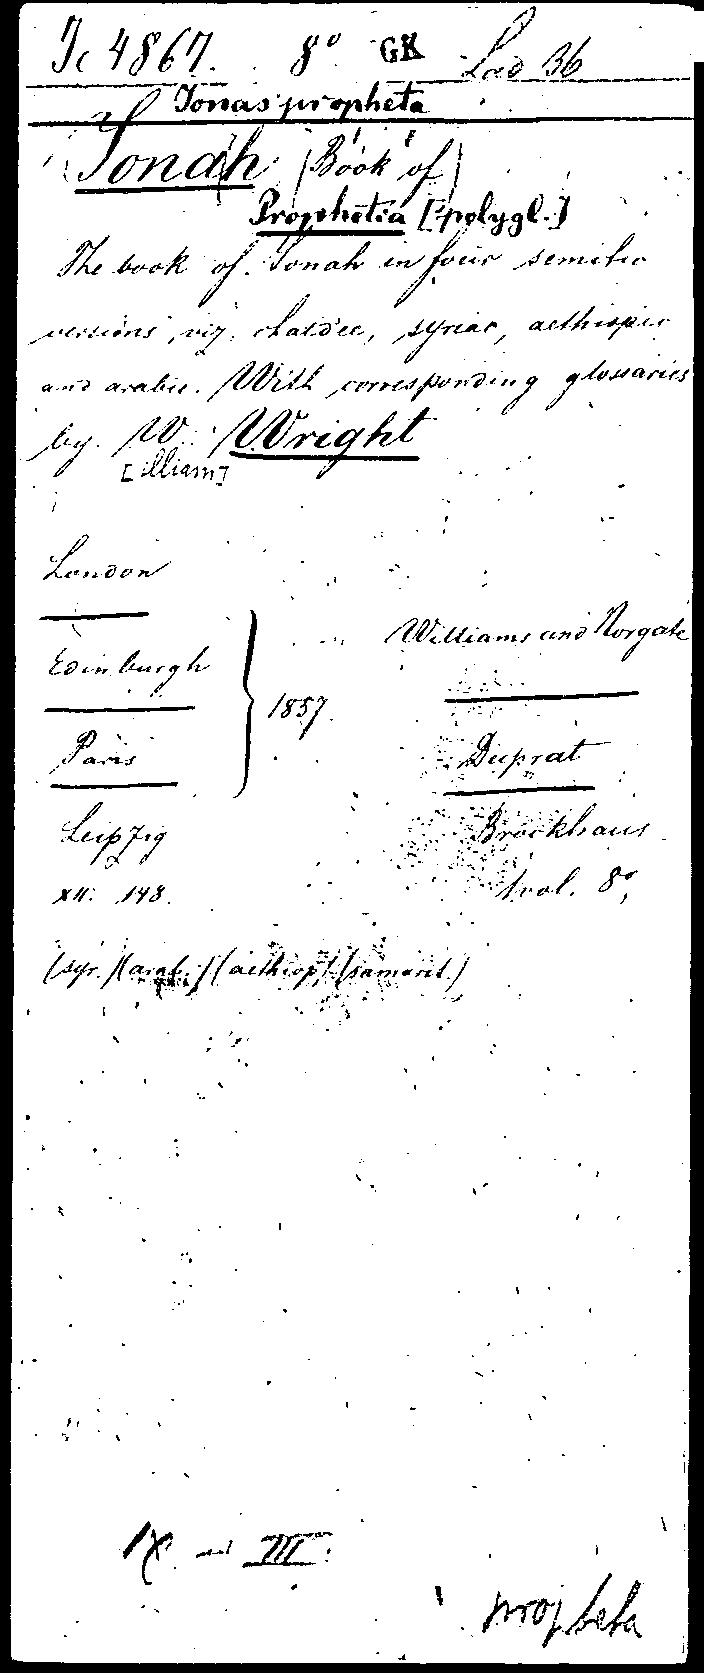 Ic 4867. 8° GK Lad 36
Jonas propheta
Jonah (Book of)
Prophetia [polygl.]
The book of Jonah in four semitic
versions, viz. chaldee, syriac, aethiopic
and arabic. With corresponding glossaries
by W. Wright
[illiam]
London
Edinburgh } 1857. Williams and Norgate
Paris Duprat
Leipzig Brockhaus
XII. 148. 1 vol. 8°,
(syr.) (arab.) (aethiop) (samarit.)
III.
propheta